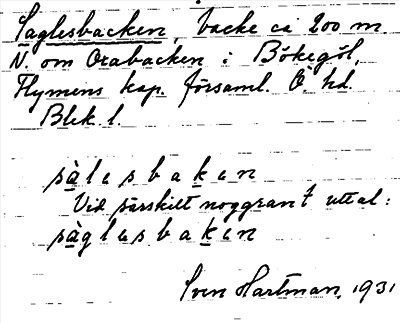 Saglesbacken, backe ca 200 m.
N. om Orabacken i Bökegöl,
Flymens kap. församl. Ö. hd.
Blek. l.
sàlesbaken
Vid särskilt noggrant uttal:
sàglesbaken
Sven Hartman, 1931